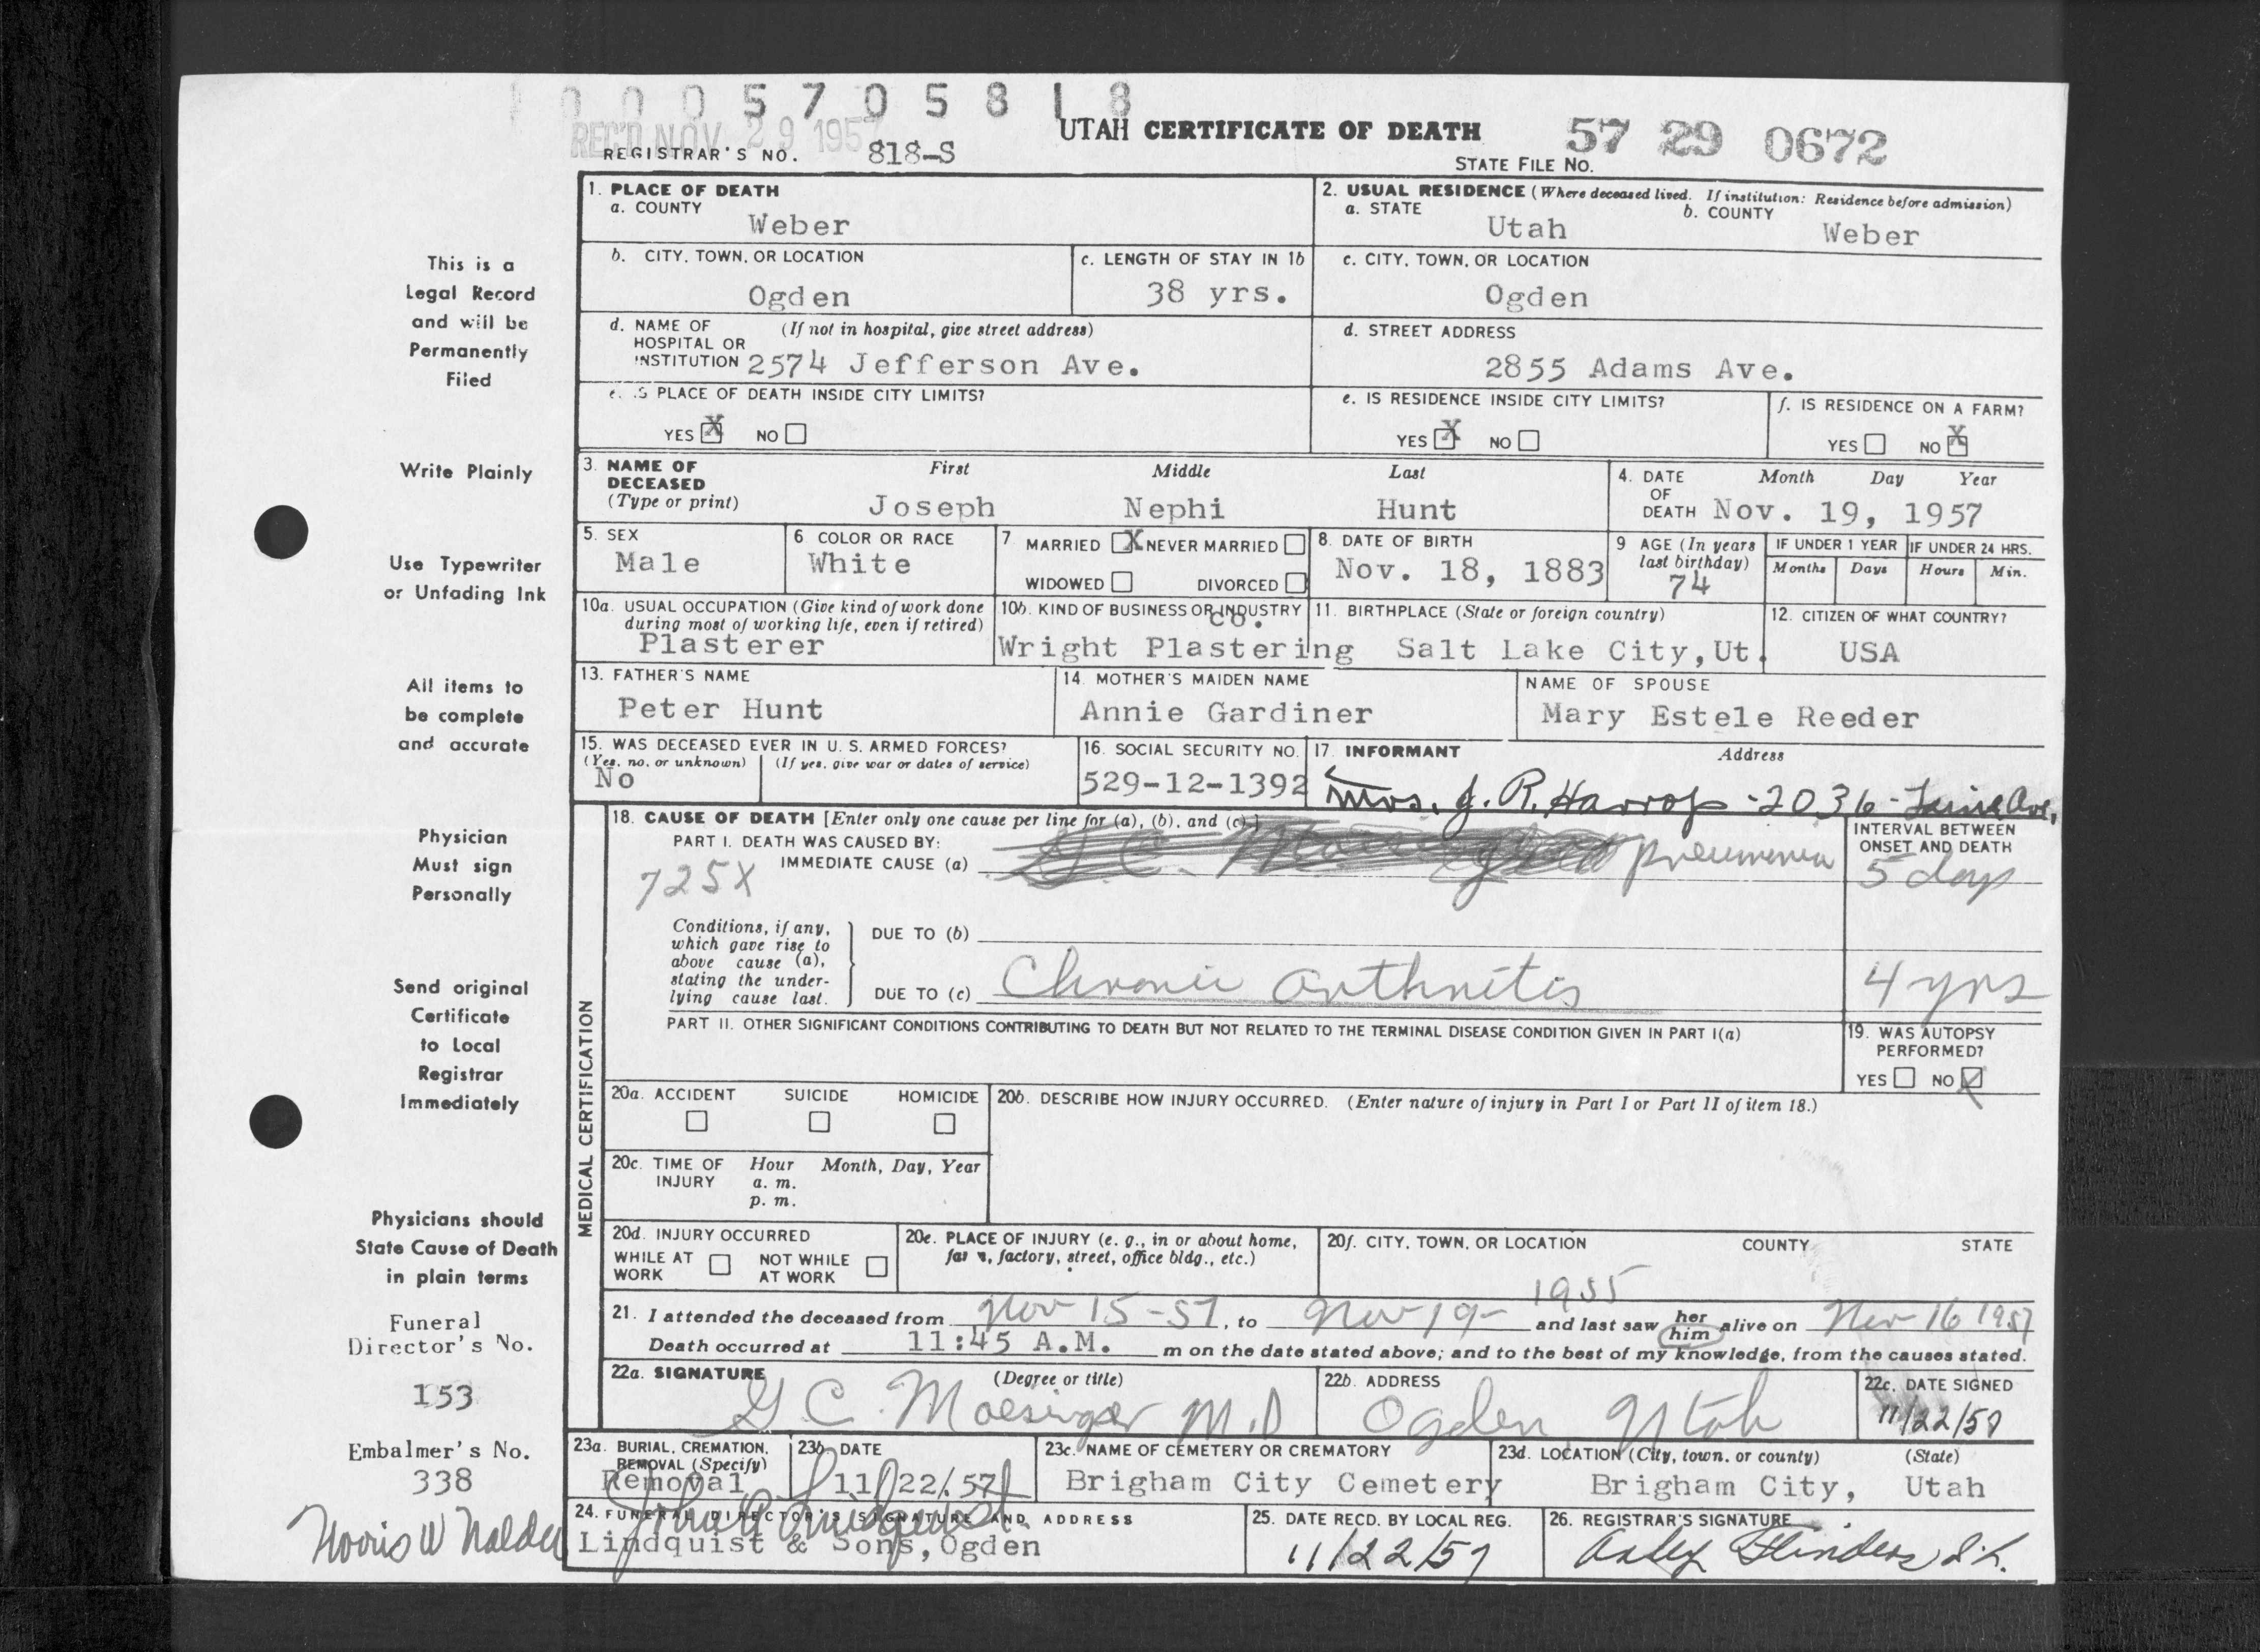 0 0 0 5 7 0 5 8 1 8
REC'D NOV 29 1957
UTAH CERTIFICATE OF DEATH
57 29 0672
REGISTRAR'S NO. 818-S
STATE FILE NO.
1. PLACE OF DEATH
a. COUNTY
Weber
2. USUAL RESIDENCE (Where deceased lived. If institution: Residence before admission)
a. STATE
Utah
b. COUNTY
Weber
b. CITY, TOWN, OR LOCATION
Ogden
c. LENGTH OF STAY IN 1b
38 yrs.
c. CITY, TOWN, OR LOCATION
Ogden
d. NAME OF HOSPITAL OR INSTITUTION
(If not in hospital, give street address)
2574 Jefferson Ave.
d. STREET ADDRESS
2855 Adams Ave.
e. IS PLACE OF DEATH INSIDE CITY LIMITS?
YES X NO
e. IS RESIDENCE INSIDE CITY LIMITS?
YES X NO
f. IS RESIDENCE ON A FARM?
YES NO X
3. NAME OF DECEASED
(Type or print)
First Middle Last
Joseph Nephi Hunt
4. DATE OF DEATH
Month Day Year
Nov. 19, 1957
5. SEX
Male
6 COLOR OR RACE
White
7 MARRIED X NEVER MARRIED
WIDOWED DIVORCED
8. DATE OF BIRTH
Nov. 18, 1883
9 AGE (In years last birthday)
74
IF UNDER 1 YEAR
Months Days
IF UNDER 24 HRS.
Hours Min.
10a. USUAL OCCUPATION (Give kind of work done
during most of working life, even if retired)
Plasterer
10b. KIND OF BUSINESS OR INDUSTRY
Co.
Wright Plastering
11. BIRTHPLACE (State or foreign country)
Salt Lake City, Ut.
12. CITIZEN OF WHAT COUNTRY?
USA
13. FATHER'S NAME
Peter Hunt
14. MOTHER'S MAIDEN NAME
Annie Gardiner
NAME OF SPOUSE
Mary Estele Reeder
15. WAS DECEASED EVER IN U. S. ARMED FORCES?
(Yes, no, or unknown) (If yes, give war or dates of service)
No
16. SOCIAL SECURITY NO.
529-12-1392
17. INFORMANT Address
Mrs. J. R. Harrop - 2036 - Ave.
MEDICAL CERTIFICATION
18. CAUSE OF DEATH [Enter only one cause per line for (a), (b), and (c).]
PART I. DEATH WAS CAUSED BY:
IMMEDIATE CAUSE (a) pneumonia
725X
INTERVAL BETWEEN ONSET AND DEATH
5 days
Conditions, if any,
which gave rise to
above cause (a),
stating the under-
lying cause last.
DUE TO (b)
DUE TO (c) Chronic arthritis
4 yrs
PART II. OTHER SIGNIFICANT CONDITIONS CONTRIBUTING TO DEATH BUT NOT RELATED TO THE TERMINAL DISEASE CONDITION GIVEN IN PART I(a)
19. WAS AUTOPSY PERFORMED?
YES NO X
20a. ACCIDENT SUICIDE HOMICIDE
20b. DESCRIBE HOW INJURY OCCURRED. (Enter nature of injury in Part I or Part II of item 18.)
20c. TIME OF INJURY
Hour Month, Day, Year
a. m.
p. m.
20d. INJURY OCCURRED
WHILE AT WORK NOT WHILE AT WORK
20e. PLACE OF INJURY (e. g., in or about home,
farm, factory, street, office bldg., etc.)
20f. CITY, TOWN, OR LOCATION COUNTY STATE
1955
21. I attended the deceased from Nov 15-57, to Nov 19- and last saw her him alive on Nov 16 1957
Death occurred at 11:45 A.M. m on the date stated above; and to the best of my knowledge, from the causes stated.
22a. SIGNATURE (Degree or title)
G C. Moesinger M.D
22b. ADDRESS
Ogden Utah
22c. DATE SIGNED
11/22/57
23a. BURIAL, CREMATION, REMOVAL (Specify)
Removal
23b. DATE
11/22/57
23c. NAME OF CEMETERY OR CREMATORY
Brigham City Cemetery
23d. LOCATION (City, town, or county) (State)
Brigham City, Utah
24. FUNERAL DIRECTOR'S SIGNATURE AND ADDRESS
John A Lindquist
Lindquist & Sons, Ogden
25. DATE RECD. BY LOCAL REG.
11/22/57
26. REGISTRAR'S SIGNATURE
Flinders
This is a
Legal Record
and will be
Permanently
Filed
Write Plainly
Use Typewriter
or Unfading Ink
All items to
be complete
and accurate
Physician
Must sign
Personally
Send original
Certificate
to Local
Registrar
Immediately
Physicians should
State Cause of Death
in plain terms
Funeral
Director's No.
153
Embalmer's No.
338
Norris W Nalder